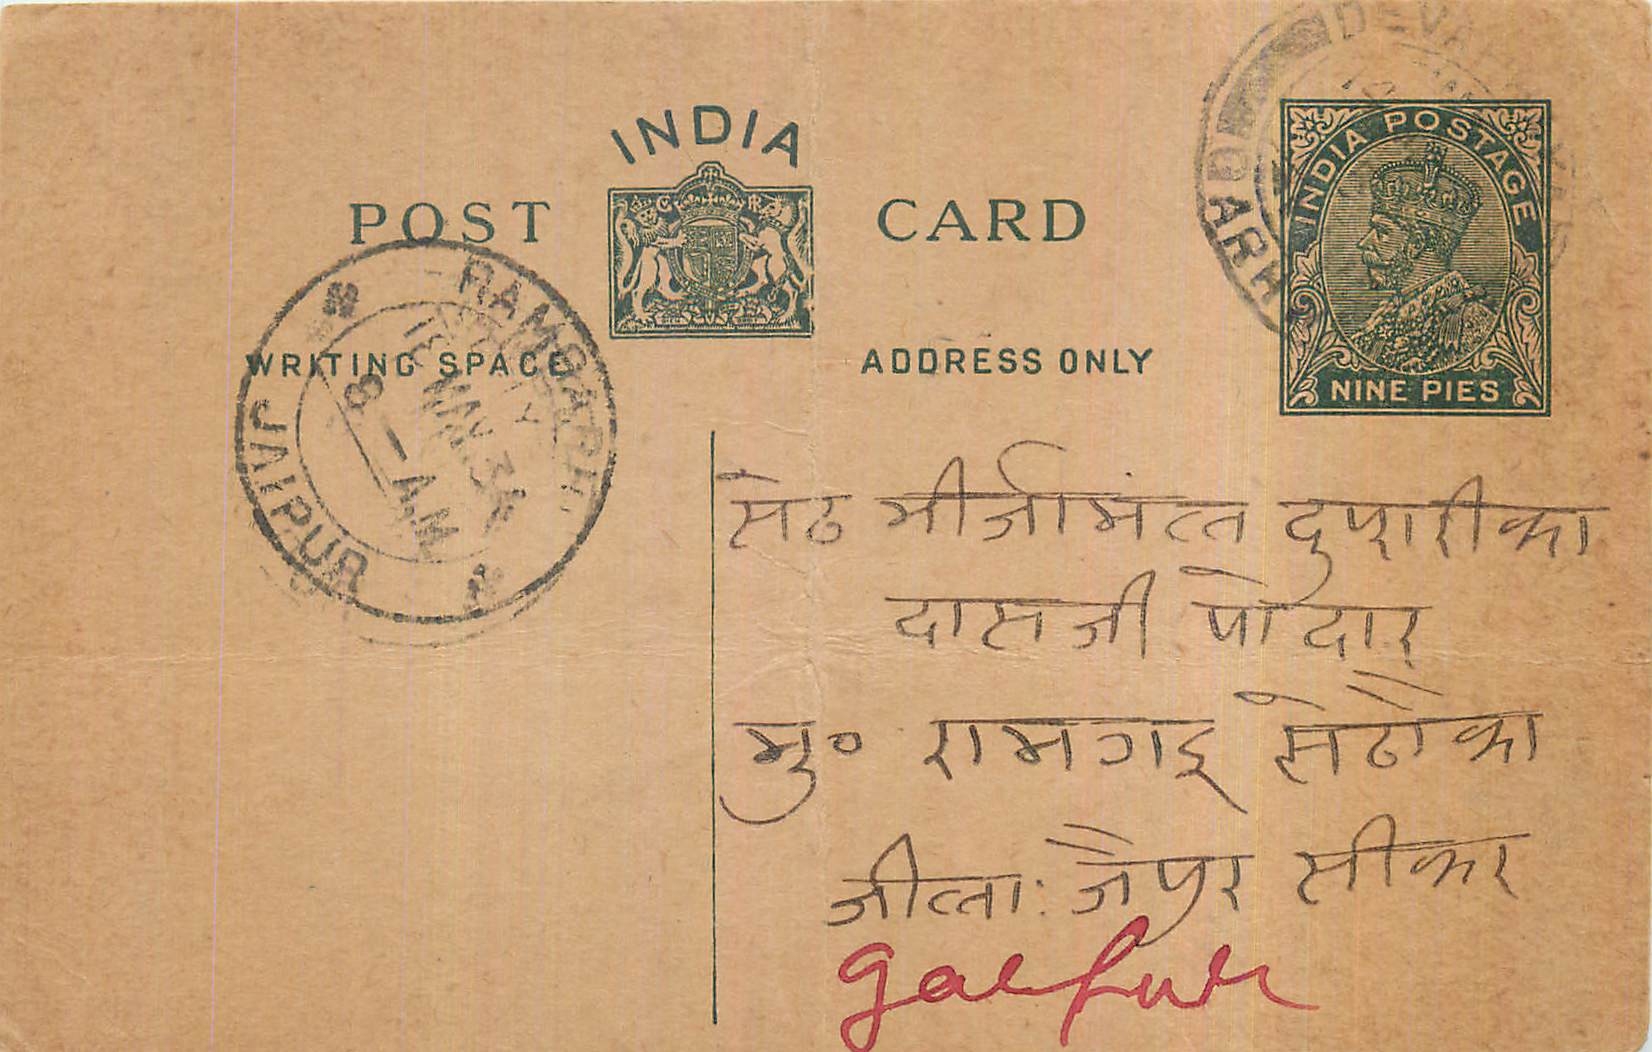 INDIA
POST CARD
WRITING SPACE
ADDRESS ONLY
INDIA POSTAGE
NINE PIES
RAMGARH
JAIPUR
8 - AM
18 MAY 34
GARH
सेठ दुपारीका
दासजी पोदार
मु० रामगड़ सेठोका
जीला: जैपुर सीकर